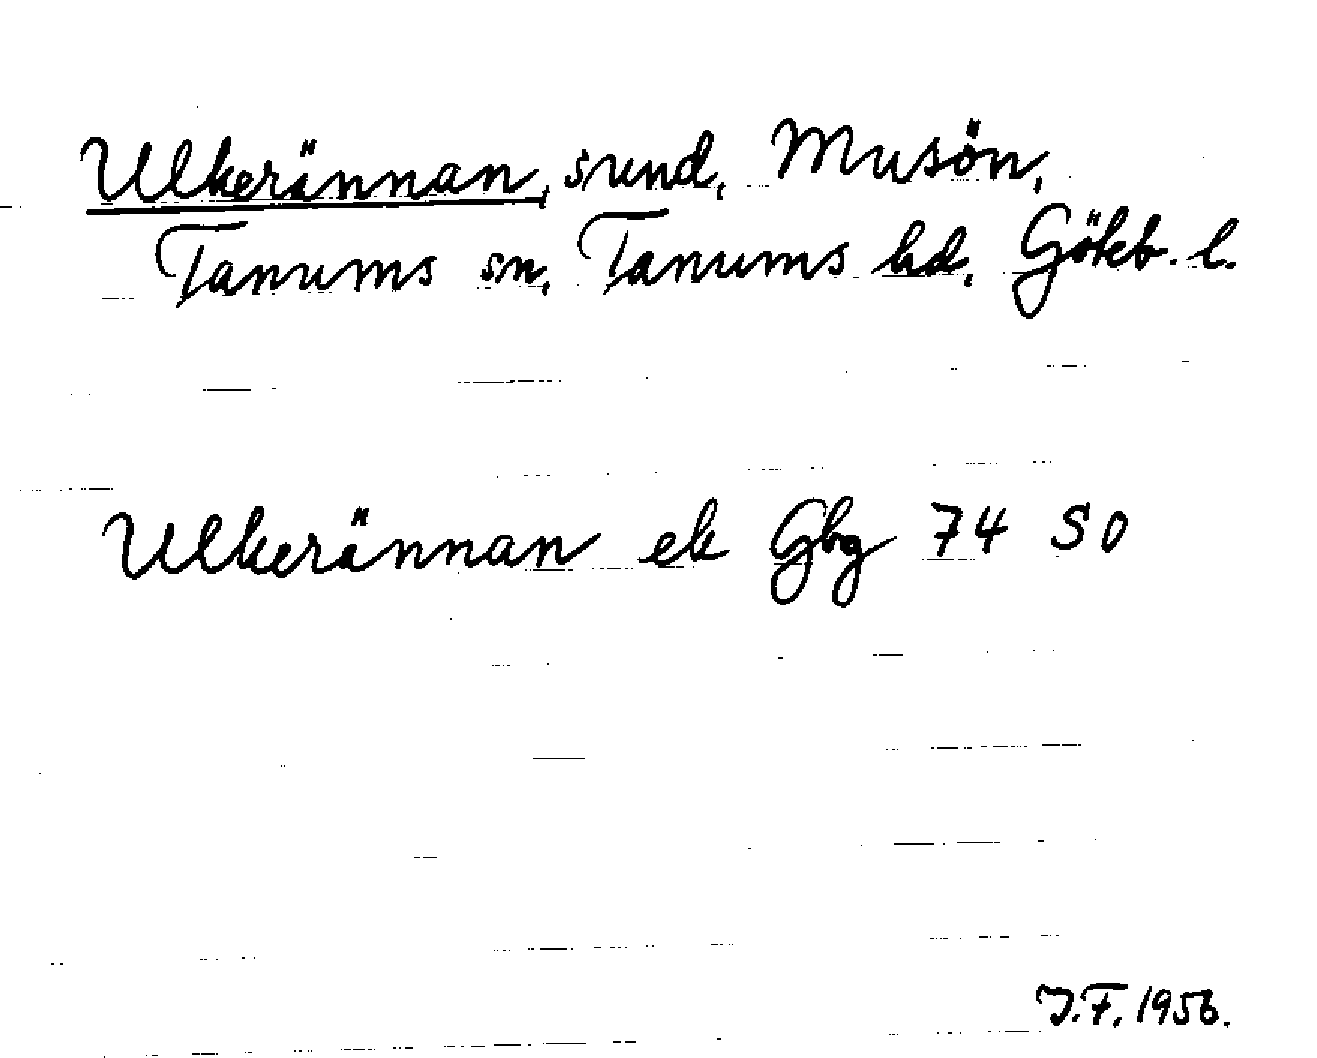 Ulkerännan, sund, Musön,
Tanums sn, Tanums hd, Göteb. l.
Ulkerännan ek Gbg 74 SO
J.F. 1956.